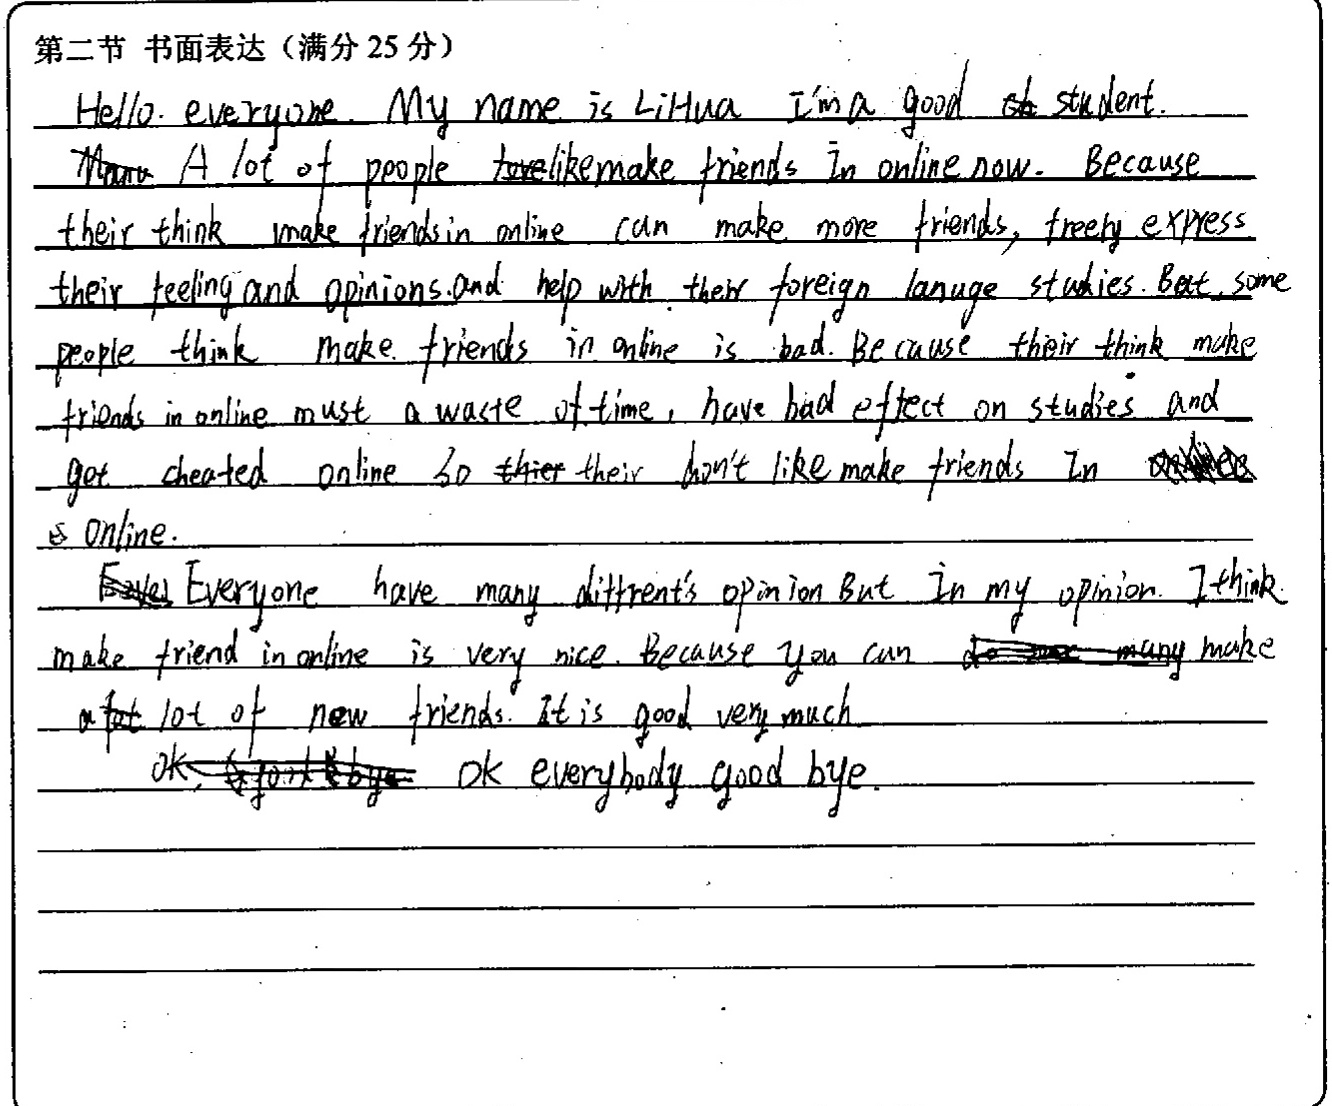 第二节 书面表达（满分 25 分）
Hello. everyone. My name is LiHua I'm a good student.
A lot of people like make friends In online now. Because
their think make friends in online can make more friends, freely express
their feeling and opinions. and help with their foreign lanuge studies. But, some
people think make friends in online is bad. Because their think make
friends in online must a waste of time, have bad effect on studies and
get cheated online So their don't like make friends In
online.
Everyone have many diffrent's opinion But In my opinion. I think
make friend in online is very nice. Because you can make
a lot of new friends. It is good very much
OK everybody good bye.